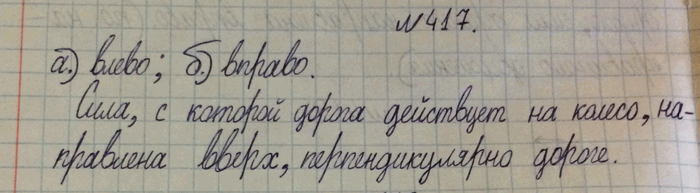 №417.
а.) влево; б.) вправо.
Сила, с которой дорога действует на колесо, на-
правлена вверх, перпендикулярно дороге.